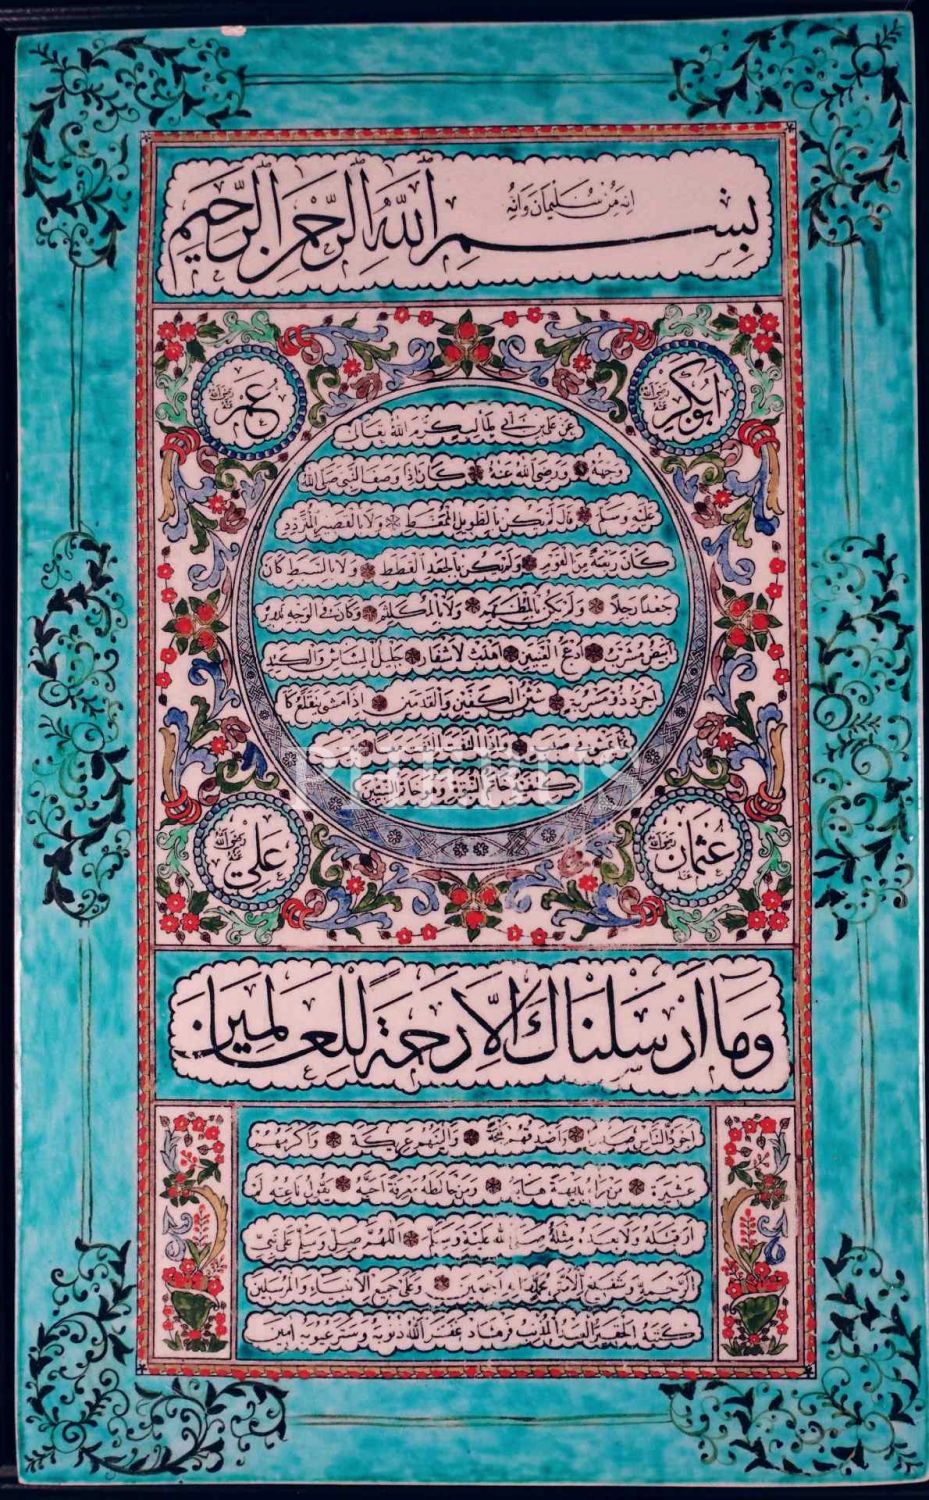 انه من سلیمان وانه
بِسْمِ اللَّهِ الرَّحْمَنِ الرَّحِيمِ
ابوبكر رضی الله عنه
عمر رضی الله عنه
عن علی بن ابی طالب كرم الله تعالى
وجهه ورضی الله عنه كان اذا وصف النبی صلی الله
علیه وسلم قال لم یكن بالطویل الممغط ولا بالقصیر المتردد
كان ربعة من القوم ولم یكن بالجعد القطط ولا بالسبط كان
جعدا رجلا ولم یكن بالمطهم ولا بالمكلثم وكان فی الوجه تدویر
ابیض مشرب ادعج العینین اهدب الاشفار جلیل المشاش والكتد
اجرد ذو مسربة شثن الكفین والقدمین اذا مشی یتقلع كا
PHEBUS
كتفیه خاتم النبوة وهو خاتم النبیین
عثمان رضی الله عنه
علی رضی الله عنه
وَمَا اَرْسَلْنَاكَ اِلَّا رَحْمَةً لِلْعَالَمِينَ
اجود الناس صدرا واصدقهم لهجة والینهم عریكة واكرمهم
عشیرة من رآه بدیهة هابه ومن خالطه معرفة احبه یقول ناعته لم
ار قبله ولا بعده مثله صلی الله علیه وسلم اللهم صل وسلم علی نبی
الرحمة وعلی جمیع الانبیاء والمرسلین
كتبه الحقیر العبد المذنب فرهاد غفر الله ذنوبه وستر عیوبه امین